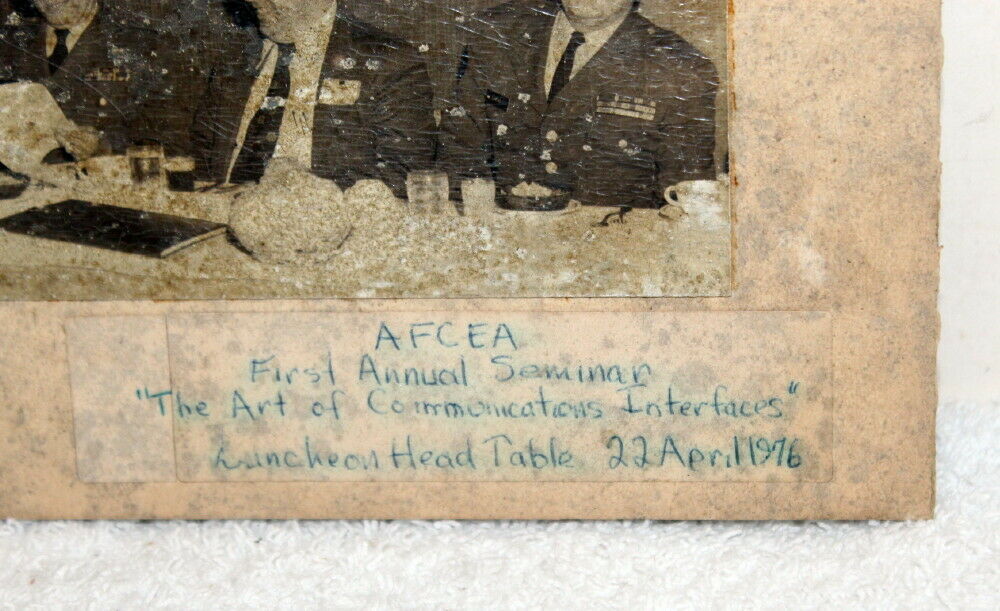 AFCEA
First Annual Seminar
"The Art of Communications Interfaces"
Luncheon Head Table 22 April 1976